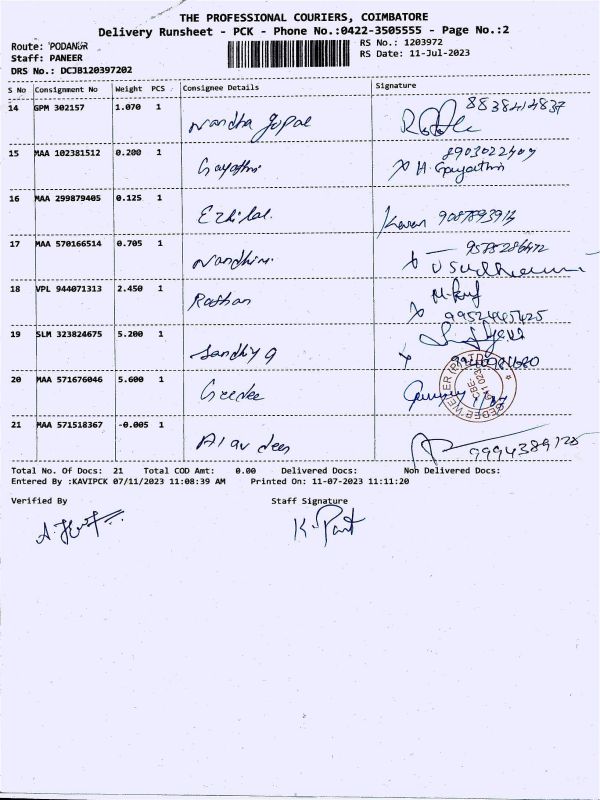 THE PROFESSIONAL COURIERS, COIMBATORE
Delivery Runsheet - PCK - Phone No.:0422-3505555 - Page No.:2
Route: PODANUR
RS No.: 1203972
Staff: PANEER
RS Date: 11-Jul-2023
DRS No.: DCJB120397202
S No Consignment No Weight PCS Consignee Details Signature
14 GPM 302157 1.070 1 Nandha gopal 8838414837
15 MAA 102381512 0.200 1 Gayathri H. Gayathri
16 MAA 299879405 0.125 1 Ezhilal Karan
17 MAA 570166514 0.705 1 Nandhini
18 VPL 944071313 2.450 1 Roshan
19 SLM 323824675 5.200 1 Sandhiya
20 MAA 571676046 5.600 1
21 MAA 571518367 -0.005 1 9994389128
Total No. Of Docs: 21 Total COD Amt: 0.00 Delivered Docs: Non Delivered Docs:
Entered By :KAVIPCK 07/11/2023 11:08:39 AM Printed On: 11-07-2023 11:11:20
Verified By Staff Signature